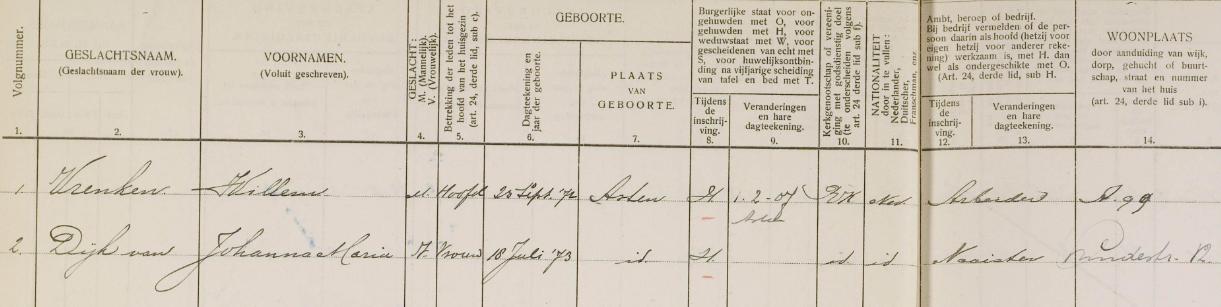 Volgnummer.
1.
GESLACHTSNAAM.
(Geslachtsnaam der vrouw).
2.
VOORNAMEN.
(Voluit geschreven).
3.
GESLACHT:
M. (Mannelijk).
V. (Vrouwelijk).
4.
Betrekking der leden tot het
hoofd van het huisgezin
(art. 24, derde lid, sub c).
5.
GEBOORTE.
Dagteekening en
jaar der geboorte.
6.
PLAATS
VAN
GEBOORTE.
7.
Burgerlijke staat voor on-
gehuwden met O, voor
gehuwden met H, voor
weduwstaat met W, voor
gescheidenen van echt met
S, voor huwelijksontbin-
ding na vijfjarige scheiding
van tafel en bed met T.
Tijdens
de
inschrij-
ving.
8.
Veranderingen
en hare
dagteekening.
9.
Kerkgenootschap of vereeni-
ging met godsdienstig doel
(te onderscheiden volgens
art. 24 derde lid sub f).
10.
NATIONALITEIT
door in te vullen:
Nederlander,
Duitscher,
Franschman, enz.
11.
Ambt, beroep of bedrijf.
Bij bedrijf vermelden of de per-
soon daarin als hoofd (hetzij voor
eigen hetzij voor anderer reke-
ning) werkzaam is, met H. dan
wel als ondergeschikte met O.
(Art. 24, derde lid, sub H.
Tijdens
de
inschrij-
ving.
12.
Veranderingen
en hare
dagteekening.
13.
WOONPLAATS
door aanduiding van wijk,
dorp, gehucht of buurt-
schap, straat en nummer
van het huis
(art. 24, derde lid sub i).
14.
1. Vrenken Willem M. Hoofd 25 Sept. '72 Asten H 1-2-07 RK Ned. Arbeider A. 99
Asten
2. Dijk van Johanna Maria V. Vrouw 18 Juli '73 id. H. id. id Naaister